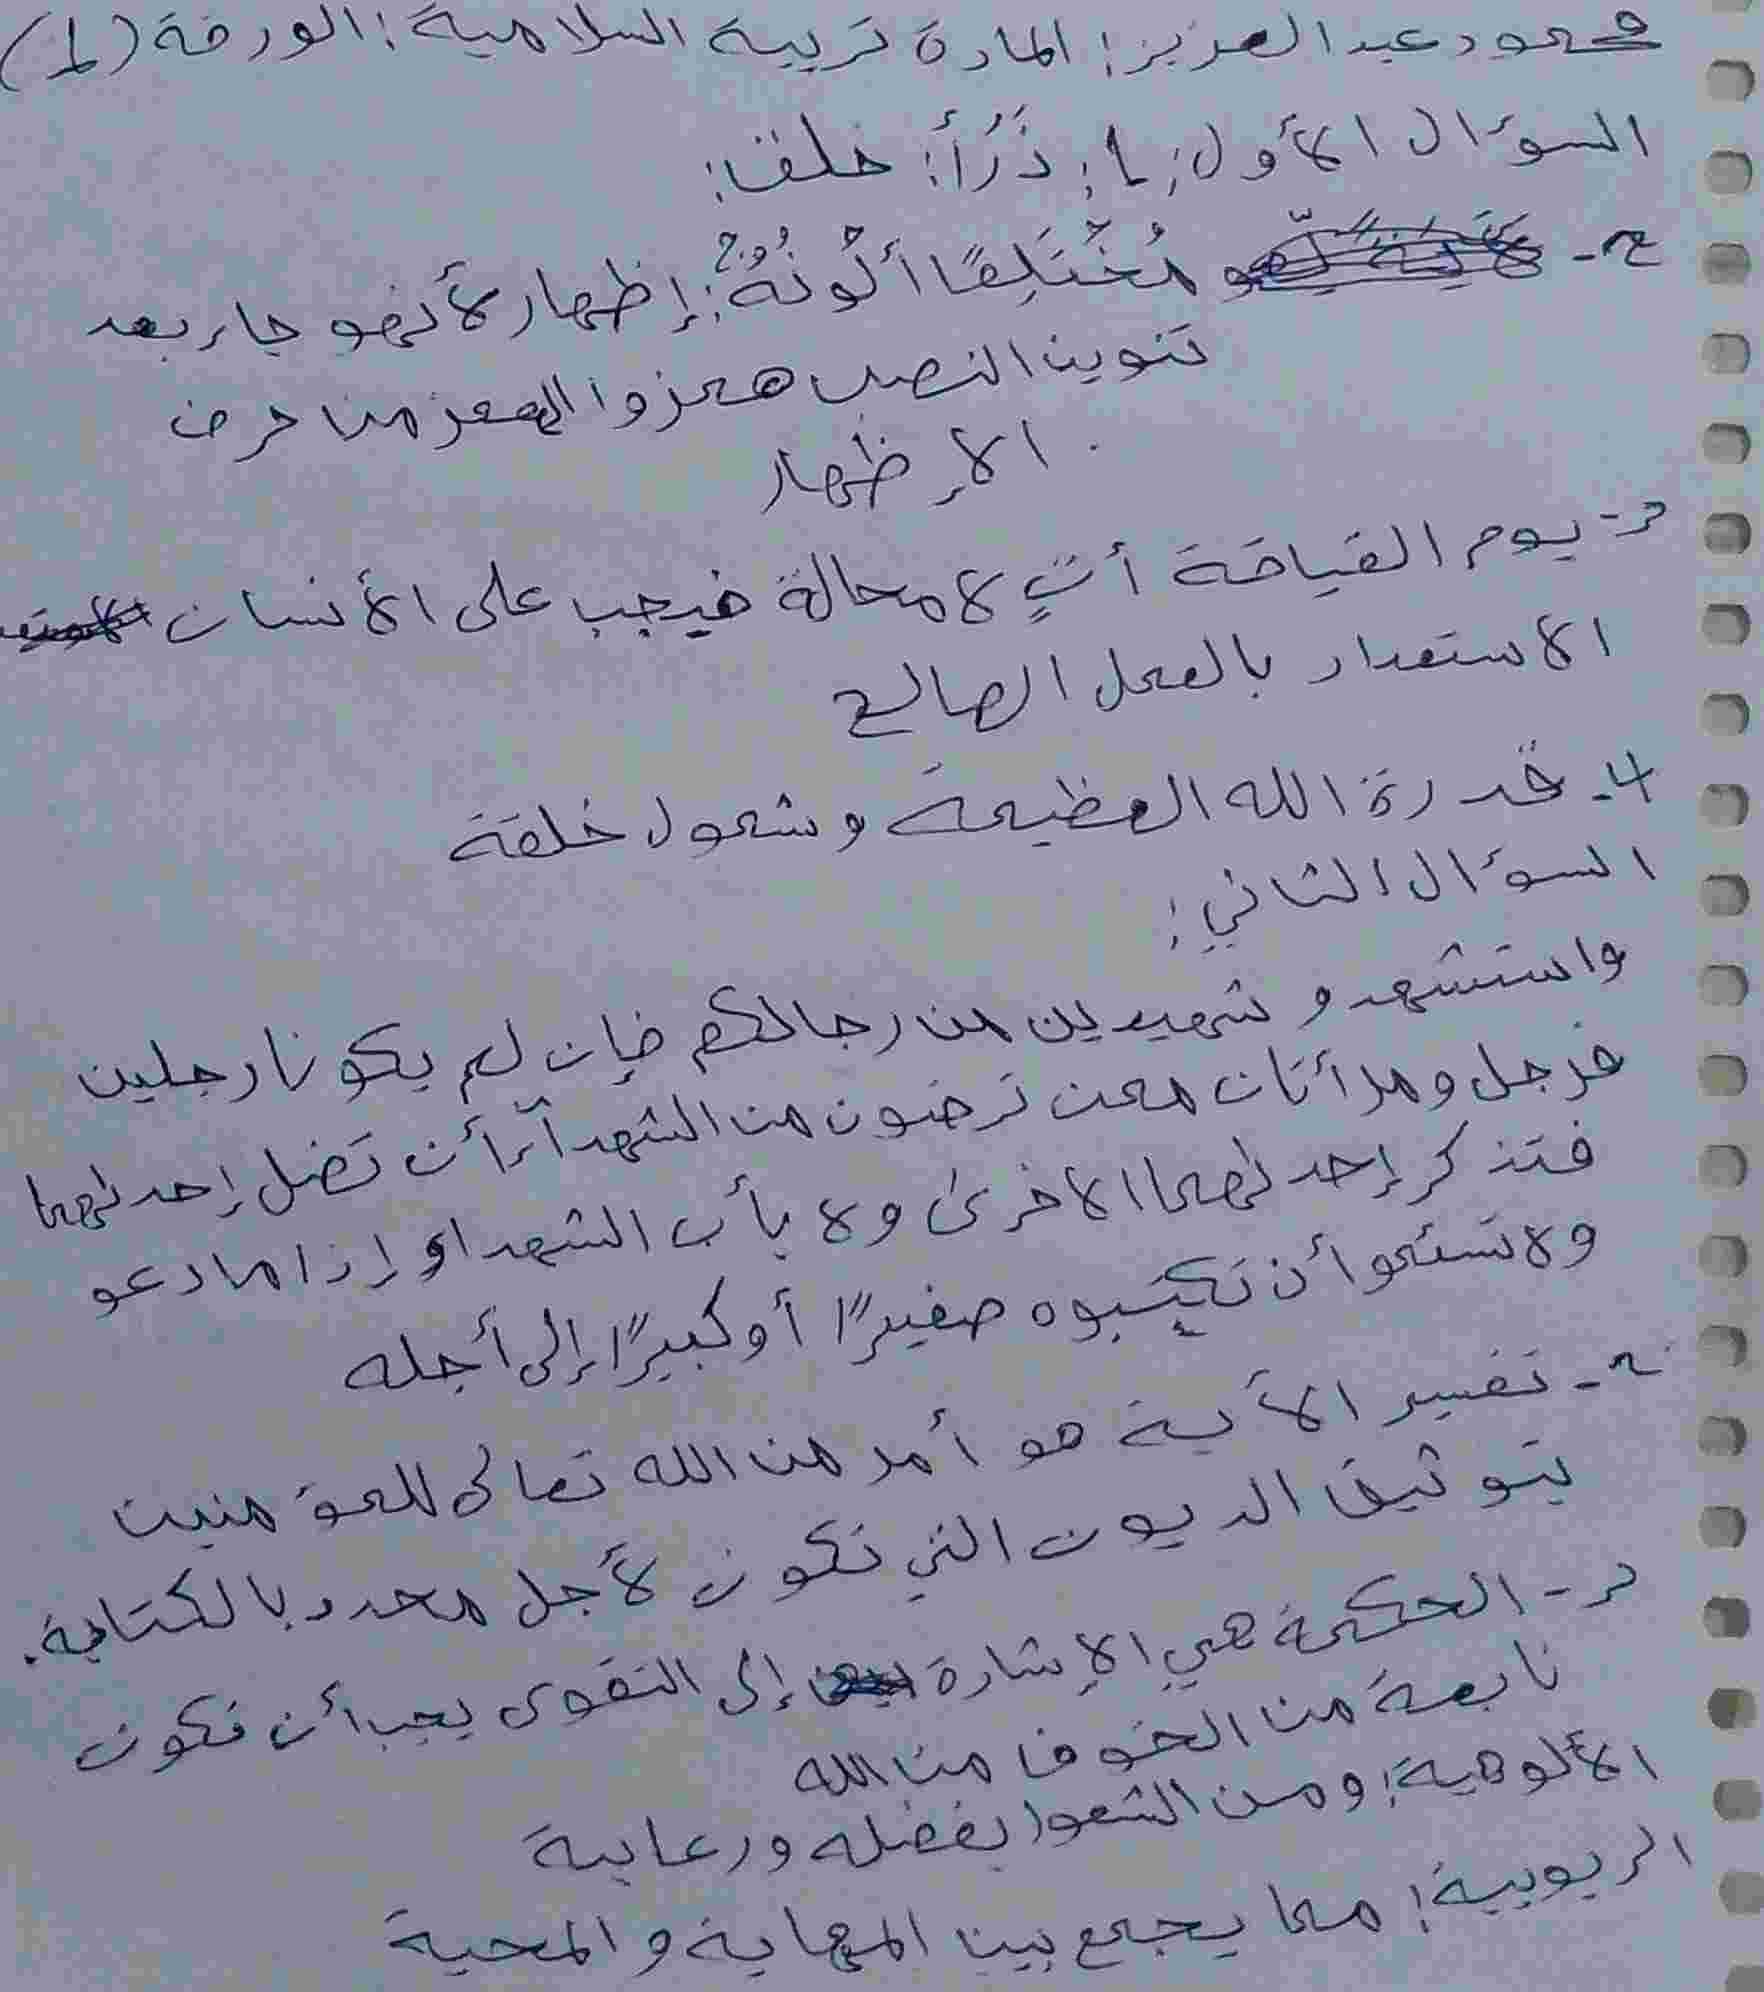 محمود عبد العزيز: المادة تربية السلامية: الورقة (1)
السؤال الأول: 1: ذَرَأَ: خلق:
2- مُخْتَلِفًا أَلْوَنُهُ: إظهار لأنهو جاء بعد
تنوين النصب همزوا الهمز من حرف
الإظهار
3- يوم القيامة أتٍ لا محالة فيجب على الأنسان
الاستعداد بالعمل الصالح
4- قدرة الله العظيمة وشمول خلقة
السؤال الثاني:
واستشهدو شهيدين من رجالكم فإن لم يكونا رجلين
فرجل ومرأتان ممن ترضون من الشهدآء أن تضل إحدىهما
فتذكر إحدىهما الاخرىٰ ولا يأب الشهداء إذا مادعو
ولا تسئموا أن تكتبوه صغيرًا أو كبيرًا إلى أجله
2- تفسير الأية هو أمر من الله تعالى للمؤمنين
بتوثيق الديون التي تكون لأجل محدد بالكتابة.
3- الحكمة هي الإشارة إلى التقوى يجب أن تكون
نابعة من الخوف من الله
الألوهية: ومن الشعوا بفضله ورعاية
الربوبية: مما يجمع بين المهابة والمحبة